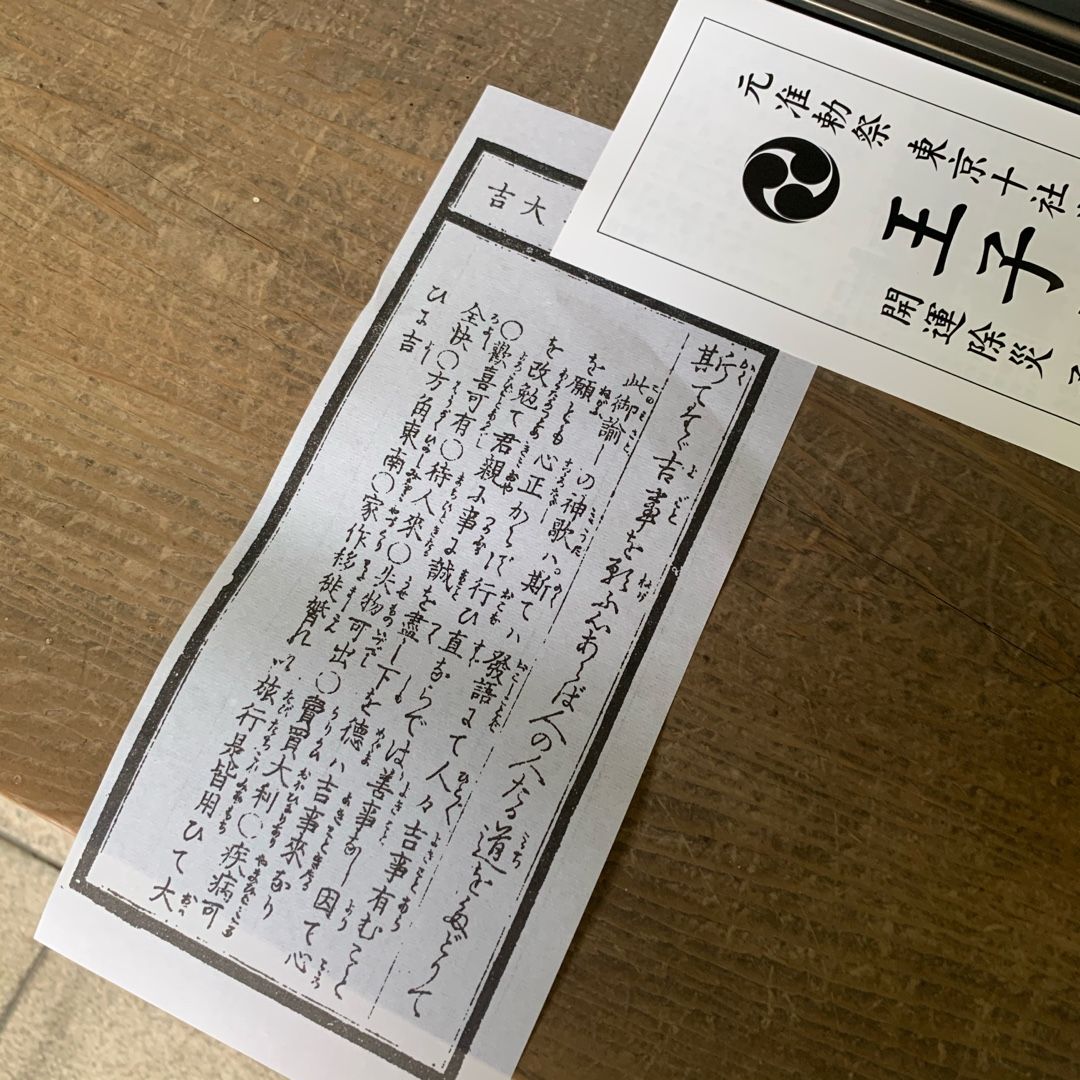 元准勅祭 東京十社
王子
開運除災
大吉
斯てぞ吉事を願ふ心あらば人の人たる道をたどりて
此御諭しの神歌ハ斯てハ發語にて人々吉事有むこと
を願ふとも心正からで行ひ直ならでは善事なし因て心
を改勉て君親に事に誠を盡し下を德ハ吉事來
〇歡喜可有〇待人來〇失物可出〇賣買大利〇疾病可
全快〇方角東南〇家作移徙え旅行是皆用ひて大
ひに吉